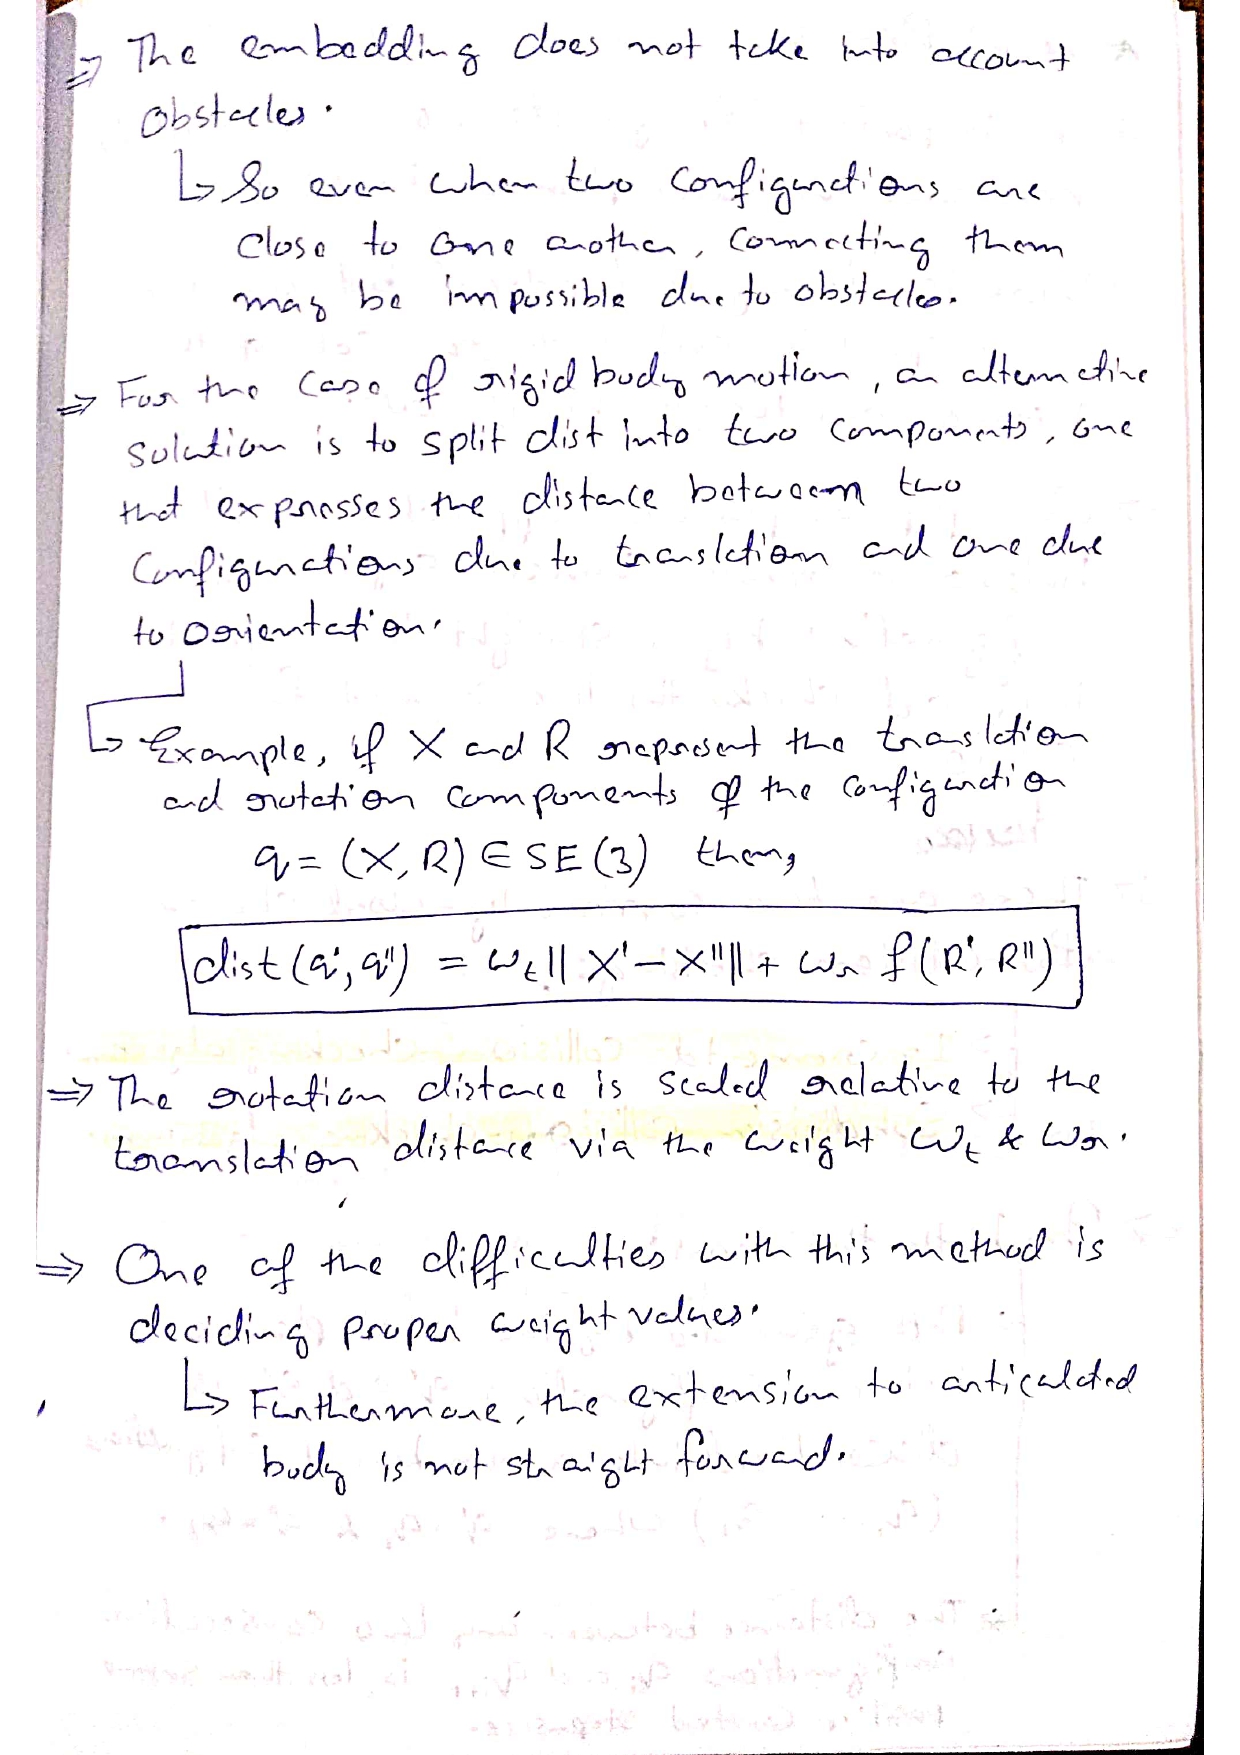 ⇒ The embedding does not take into account
obstacles.
↳ So even when two configurations are
close to one another, connecting them
may be impossible due to obstacles.
⇒ For the case of rigid body motion, an alternative
solution is to split dist into two components, one
that expresses the distance between two
configurations due to translation and one due
to orientation.
↳ Example, if X and R represent the translation
and rotation components of the configuration
q = (X, R) ∈ SE(3) then,
dist(q', q'') = ω_t || X' − X'' || + ω_r f(R', R'')
⇒ The rotation distance is scaled relative to the
translation distance via the weight ω_t & ω_r.
⇒ One of the difficulties with this method is
deciding proper weight values.
↳ Furthermore, the extension to articulated
body is not straight forward.